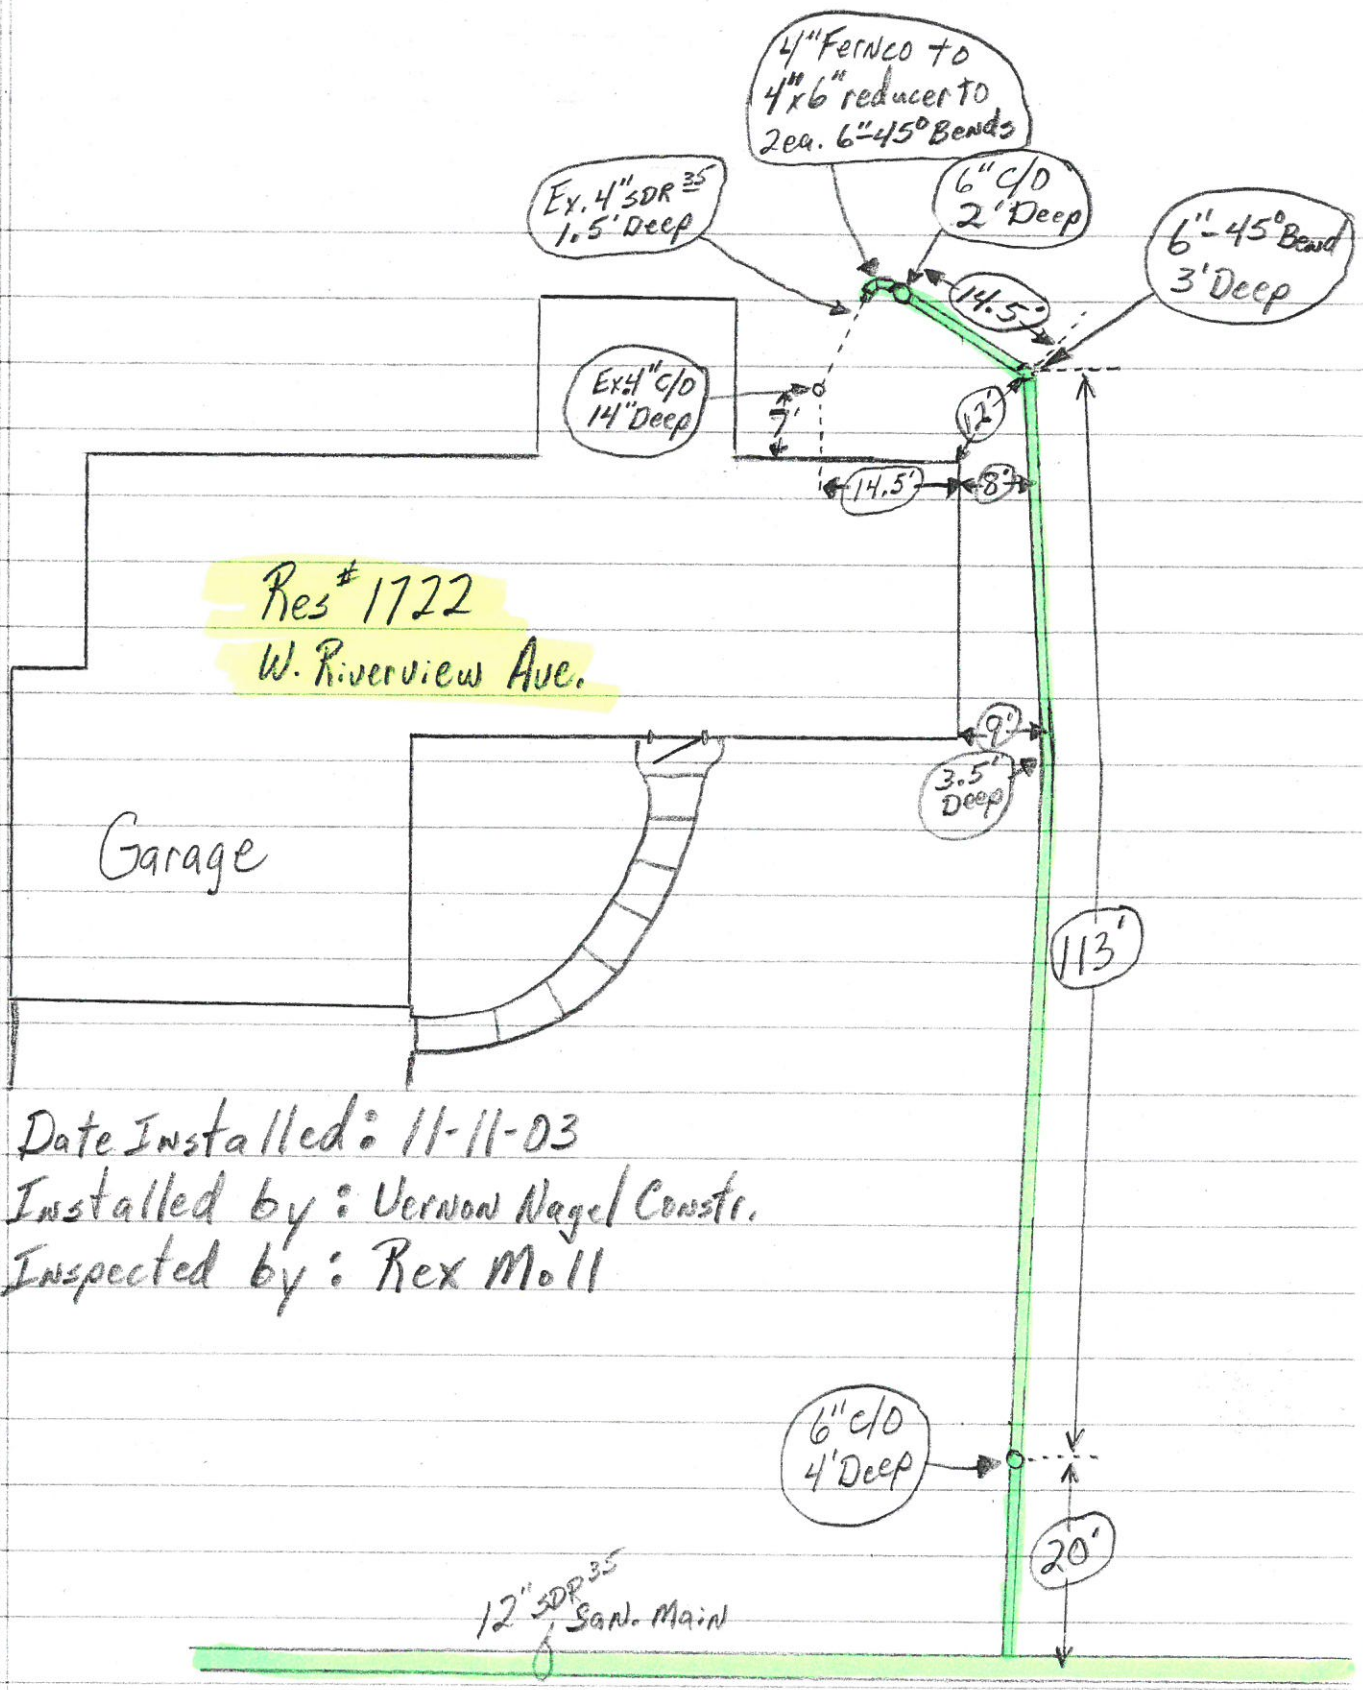 4" Fernco to
4"x6" reducer to
2ea. 6"-45° Bends
Ex. 4" SDR 35
1.5' Deep
6" C/O
2' Deep
6"-45° Bend
3' Deep
14.5'
Ex 4" C/O
14" Deep
7'
12'
14.5'
8'
Res # 1722
W. Riverview Ave.
9'
3.5'
Deep
Garage
113'
Date Installed: 11-11-03
Installed by: Vernon Nagel Constr.
Inspected by: Rex Moll
6" C/O
4' Deep
20'
12" SDR 35
San. Main